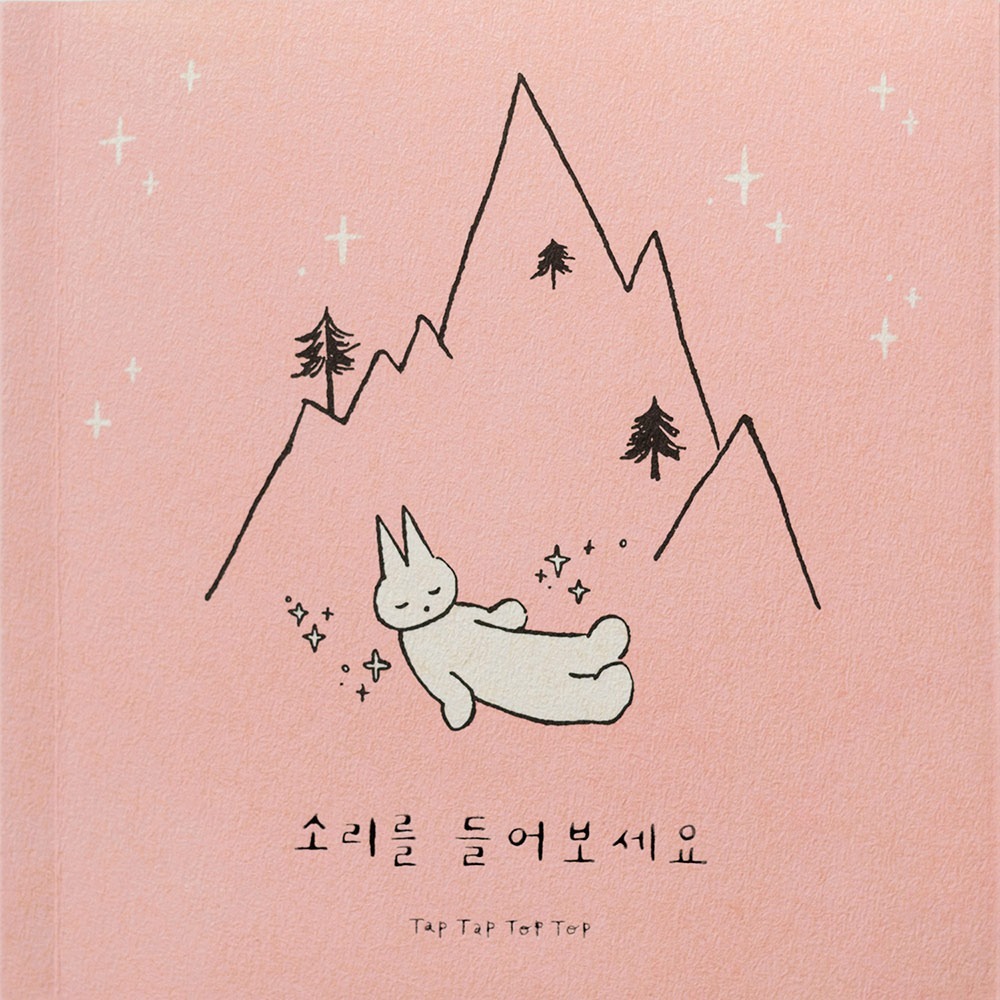 소리를 들어보세요
Tap Tap Top Top